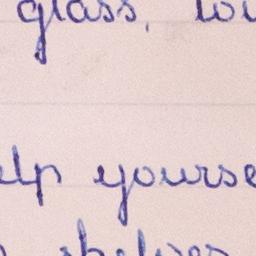 glass,
elp yourse
shelves